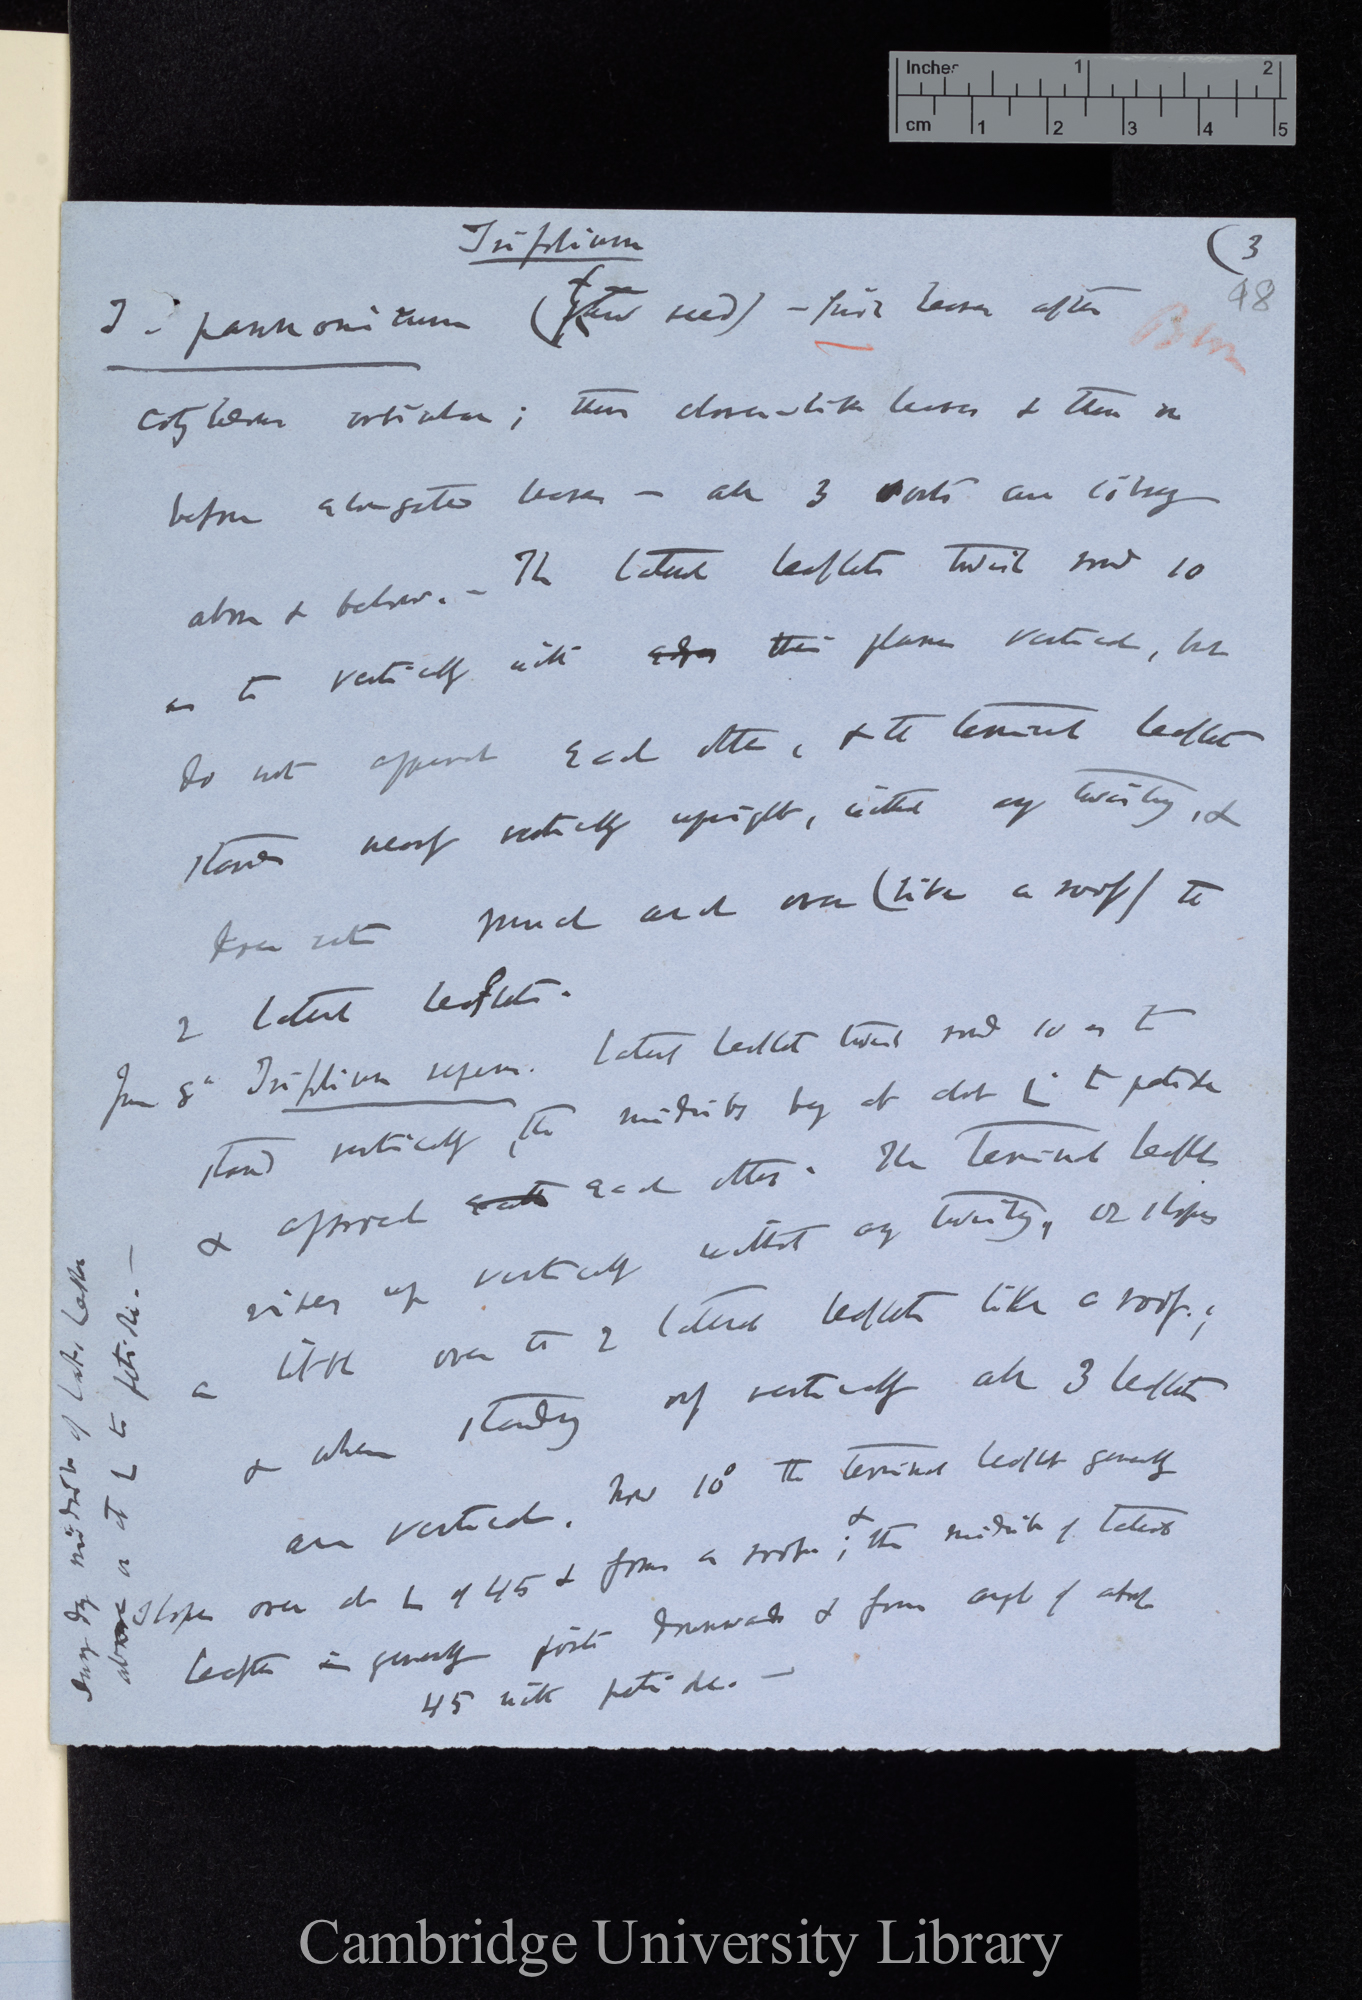 Inches 1 2
cm 1 2 3 4 5
Trifolium
(3
98
T. pannonicum (from seed) — first leaves after
cotyledons orbicular; then clover-like leaves & then
before elongated leaves — all 3 sorts are
above & below. — The lateral leaflets twist round so
as to vertically with edges their planes vertical, but
do not approach each other, & the terminal leaflet
stands nearly vertically upright, without any twisting, &
does not much arch over (like a roof) the
2 lateral leaflets.
June 8th Trifolium repens. Lateral leaflets twist round so as to
stand vertically, the midribs being at about L to petiole
& approach each other. The terminal leaflet
rises up vertically without any twisting, or slopes
a little over the 2 lateral leaflets like a roof;
& when standing up vertically all 3 leaflets
are vertical. Now 10° the terminal leaflet generally
slopes over at L of 45 & forms a roof; & the midrib of lateral
leaflets generally points downwards & form angle of about
45 with petiole. —
During day midribs of late. leaflets
above at L to petiole. —
Cambridge University Library